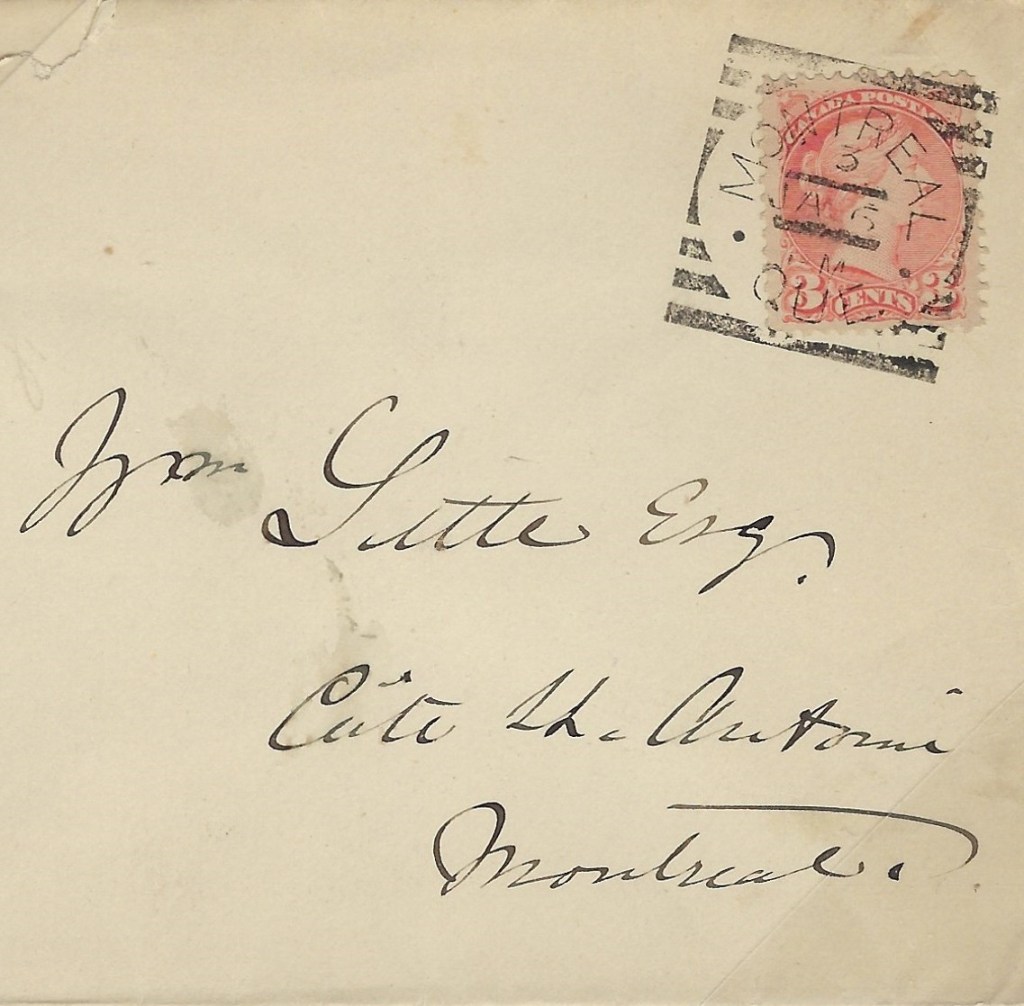 CANADA POSTAGE
MONTREAL
3
JA 6
M
QUE.
3 CENTS 3
Wm Little Esq.
Côte St. Antoine
Montreal.